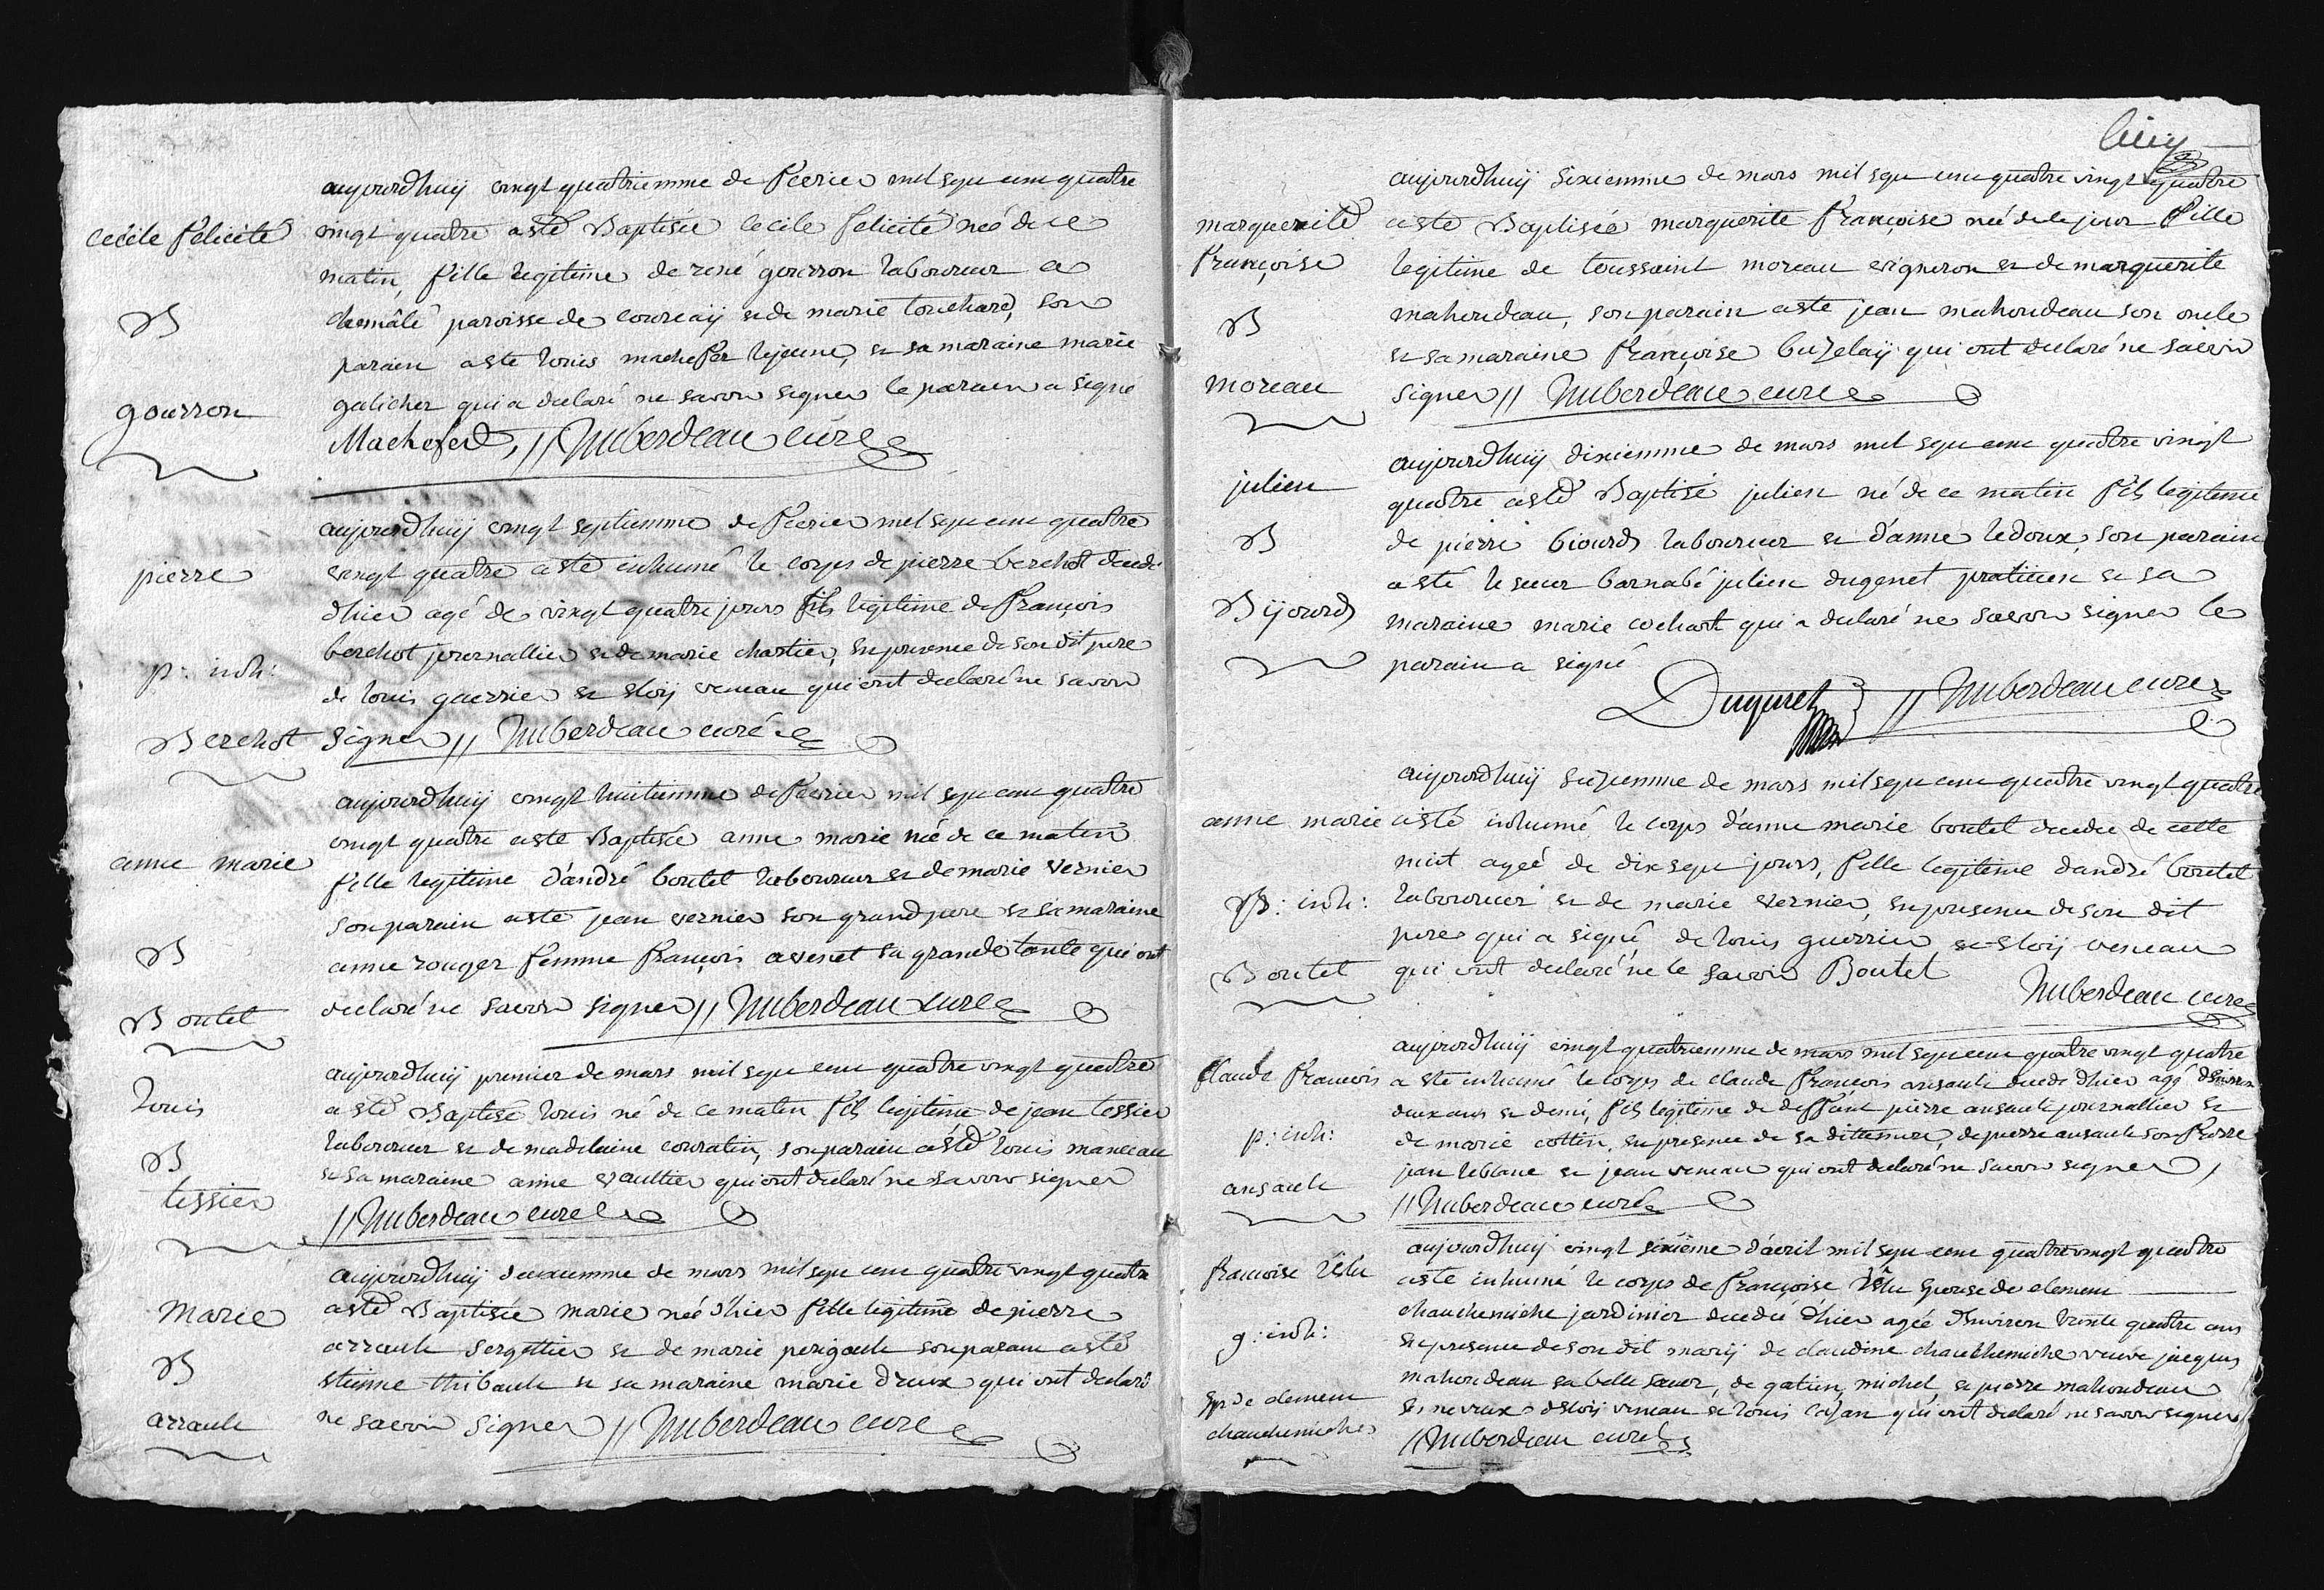 cecile felicité
B
gourron
aujourdhuij vingt quatriemme de fevrier mil sept cent quatre
vingt quatre a esté Baptisée cecile felicité née de ce
matin, fille legitime de rené gourron laboureur a
chemâlé paroisse de courcaÿ et de marie touchard, son
parain a esté louis machefer lejeune, et sa maraine marie
galicher qui a declaré ne savoir signer le parain a signé
Machefert, // Nuberdeau curé
pierre
p: inh:
Berchot
aujourdhuij vingt septiemme de fevrier mil sept cent quatre
vingt quatre a esté inhumé le corps de pierre berchot decedé
dhier agé de vingt quatre jours fils legitime de françois
berchot journallier et de marie chartier, en presence de son dit pere
de louis guerrier et eloÿ veneau qui ont declaré ne savoir
signer // Nuberdeau curé
anne marie
B
Boutet
aujourdhuij vingt huitiemme de fevrier mil sept cent quatre
vingt quatre a esté Baptisée anne marie née de ce matin
fille legitime d'andré boutet laboureur et de marie vernier
son parain a esté jean vernier son grand pere et sa maraine
anne rouger femme françois avenet sa grande tante qui ont
declaré ne savoir signer // Nuberdeau curé
louis
B
tessier
aujourdhuij premier de mars mil sept cent quatre vingt quatre
a esté Baptisé louis né de ce matin fils legitime de jean tessier
laboureur et de madelaine couratin, son parain a esté louis manceau
et sa maraine anne vaultier qui ont declaré ne savoir signer
// Nuberdeau curé
Marie
B
arrault
aujourdhuij deuxiemme de mars mil sept cent quatre vingt quatre
a esté Baptisée marie née d'hier fille legitime de pierre
arrault sergettier et de marie perigault son parain a esté
etienne thibault et sa maraine marie d'reux qui ont declaré
ne savoir signer // Nuberdeau curé
marguerite
françoise
B
moreau
aujourdhuij sixiemme de mars mil sept cent quatre vingt quatre
a esté Baptisée marguerite françoise née de le jour fille
legitime de toussaint moreau vigneron et de marguerite
mahoudeau, son parain a esté jean mahoudeau son oncle
et sa maraine françoise buzelaÿ qui ont declaré ne savoir
signer // Nuberdeau curé
julien
B
Bijourd
aujourdhuij dixiemme de mars mil sept cent quatre vingt
quatre a esté Baptisé julien né de ce matin fils legitime
de pierre biourd laboureur et d'anne ledoux, son parain
a esté le sieur barnabé julien dugenet praticien et sa
maraine marie cochart qui a declaré ne savoir signer le
parain a signé
Duguet // Nuberdeau curé
anne marie
p: inh:
Boutet
aujourdhuij seizemme de mars mil sept cent quatre vingt quatre
a esté inhumé le corps d'anne marie boutet decedée de cette
nuit agée de dix sept jours, fille legitime d'andré boutet
laboureur et de marie vernier, en presence de son dit
pere qui a signé, de louis guerrier et eloÿ veneau
qui ont declaré ne le savoir Boutet
Nuberdeau curé
claude francois
p: inh:
ansault
aujourdhuij vingt quatriemme de mars mil sept cent quatre vingt quatre
a esté inhumé le corps de claude françois ansault decedé dhier agé d'environ
deux ans et demi, fils legitime de deffunt pierre ansault journallier et
de marie cottin, en presence de sa ditte mere, de pierre ansault son frerre
jean leblanc et jean veneau qui ont declaré ne savoir signer,
// Nuberdeau curé
francoise
g: inh:
Ep: de clement
chauchemiche
aujourdhuij vingt sixième d'avril mil sept cent quatre vingt quatre
a esté inhumé le corps de françoise epouse de clement
chauchemiche jardinier decedée d'hier agée d'environ trente quatre ans
en presence de son dit marÿ de claudine chauchemiche veuve jacques
mahoudeau sa belle sœur, de gatien, michel, et pierre mahoudeau
ses neveux d'eloÿ veneau et louis qui ont declaré ne savoir signer
// Nuberdeau curé